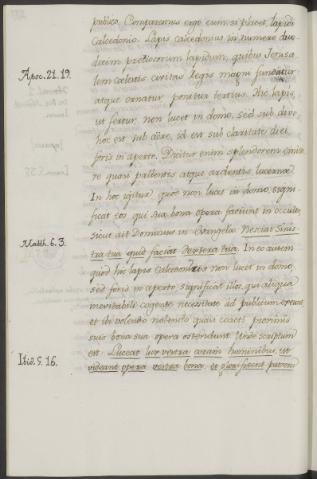 publico. Comparamus ergo eum, si placet, lapidi
calcedonio. Lapis calcedonius in numero duo-
decim pretiosorum lapidum, quibus Jerusa-
Apoc. 21. 19.
lem cælestis civitas legis magni fundatur
atque ornatur ponitur tertius. Hic lapis,
ut fertur, non lucet in domo, sed sub divo
hoc est sub aëre, id est sub claritate diei
foris in aperto. Dicitur enim splendorem emite-
re quasi pallentis atque ardentis lucernæ
In hoc igitur quod non lucet in domo, signi-
ficat eos qui sua bona opera faciunt in occulto,
sicut ait Dominus in Evangelio Nesciat sinis-
Matth. 6. 3.
tra tua quid faciat dextera tua. In eo autem
quod hic lapis calcedonius non lucet in domo,
sed foris in aperto significat illos, qui aliqua
inevitabili cogente necessitate ad publicum exeunt
et ibi volendo nolendo quasi coacti proximis
suis bona sua opera ostendunt. Unde scriptum
Ibid. 5. 16.
est. Luceat lux vestra coram hominibus, ut
videant opera vestra bona, et glorificent patrem